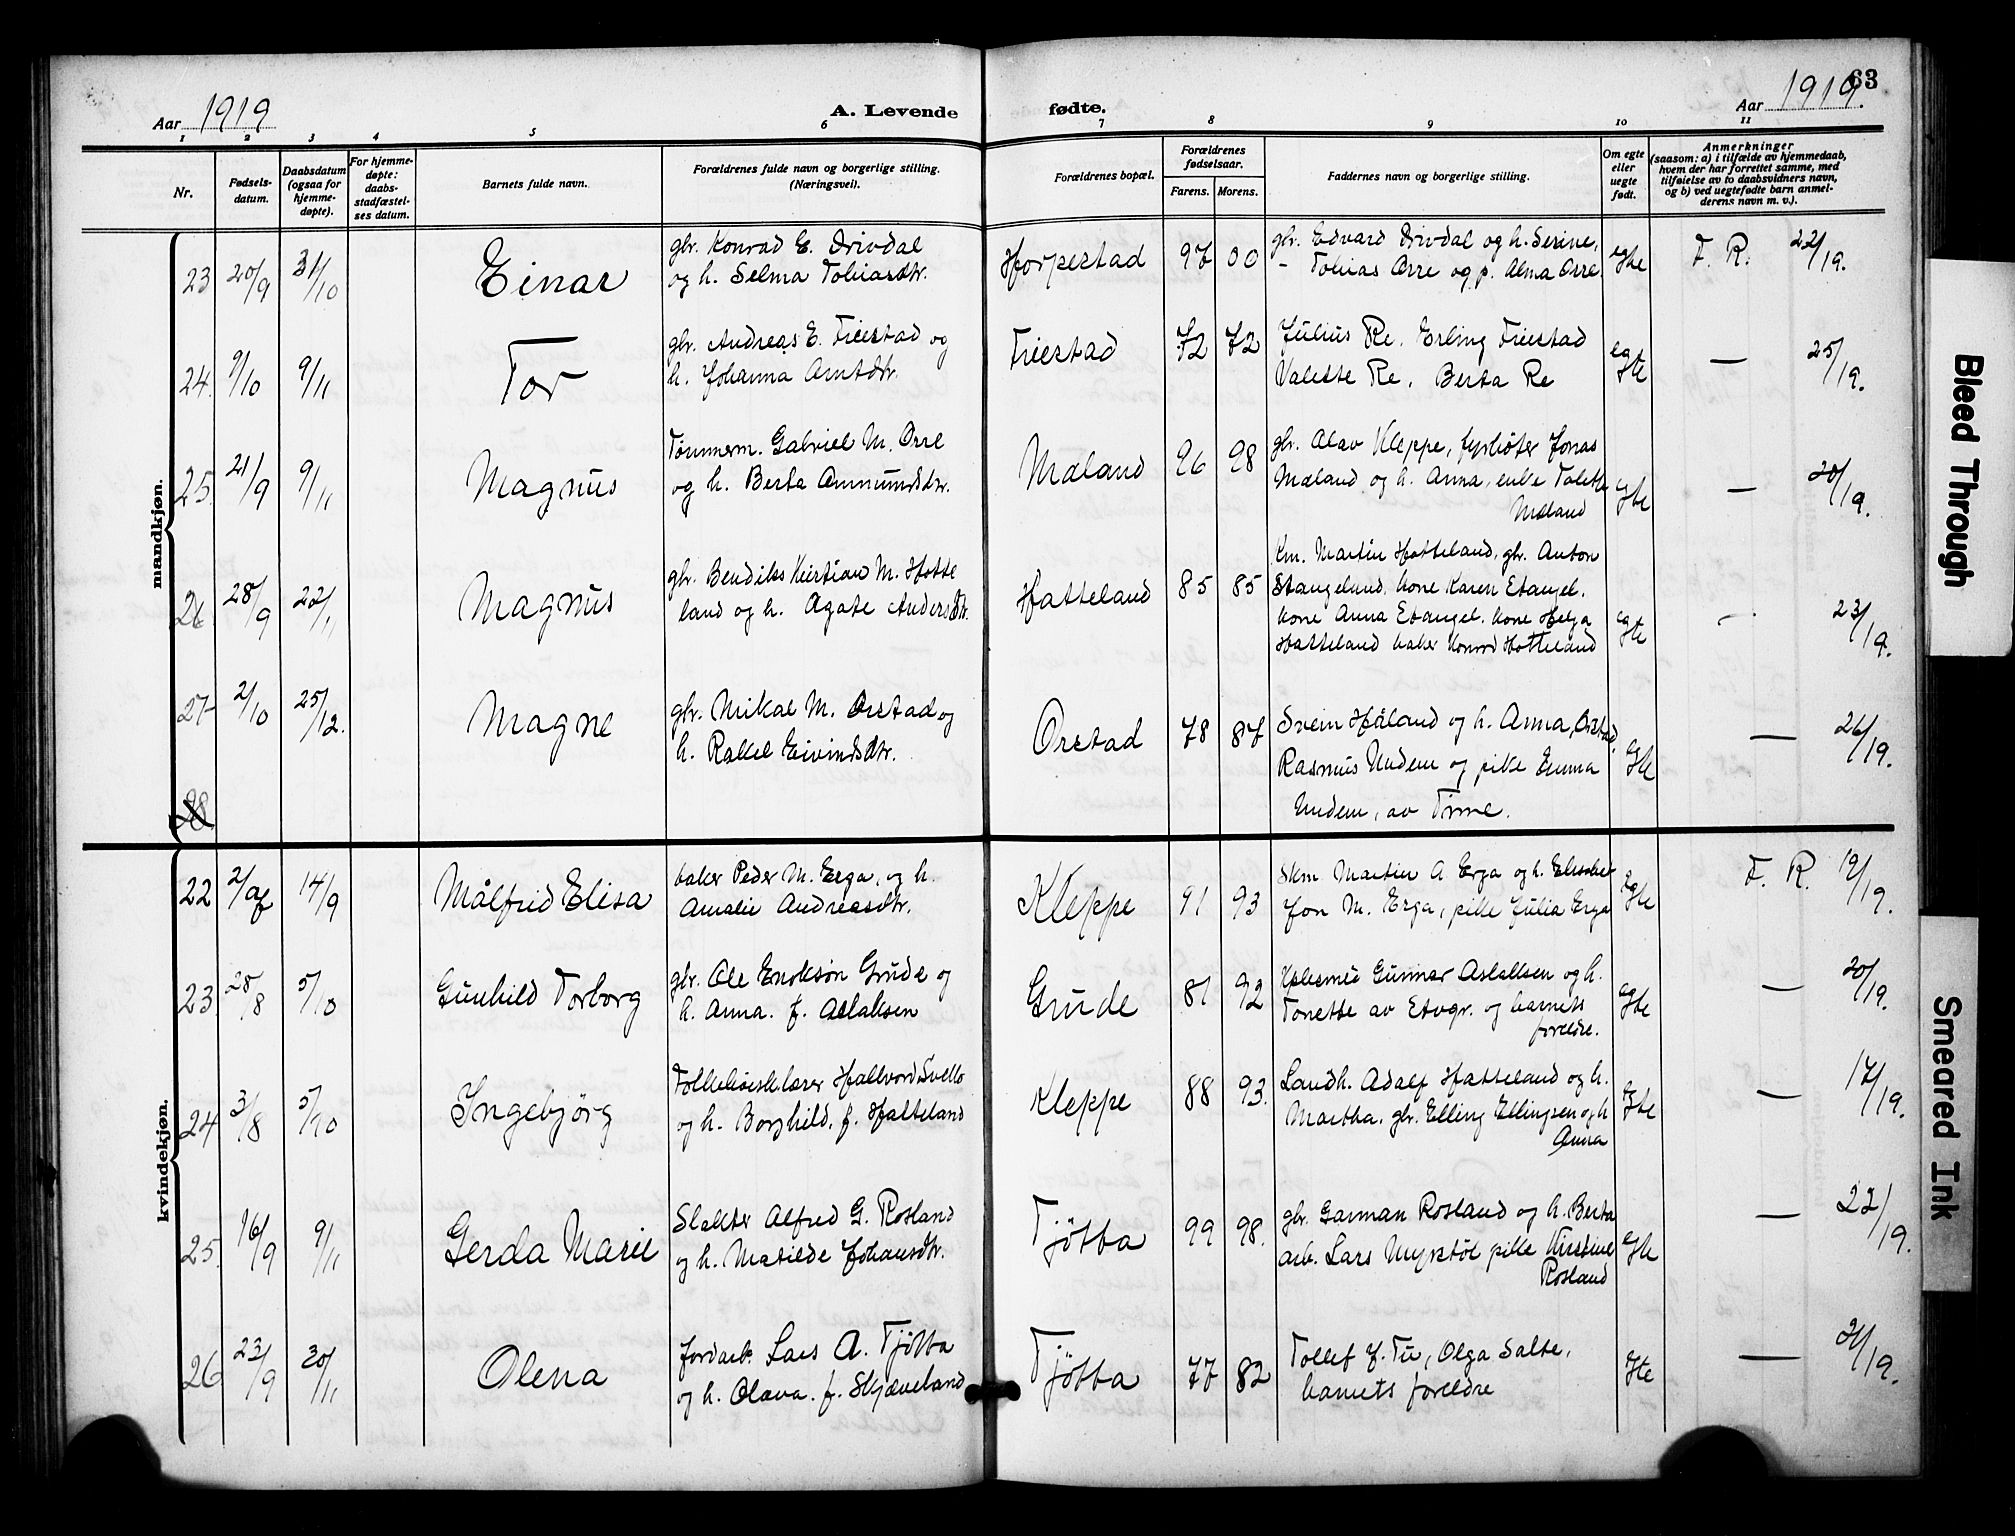 63
Aar 1919
A. Levende fødte.
Aar 1919.
1 2 3 4 5 6 7 8 9 10 11
Nr.
Fødsels-
datum.
Daabsdatum
(ogsaa for
hjemme-
døpte).
For hjemme-
døpte:
daabs-
stadfæstel-
ses datum.
Barnets fulde navn.
Forældrenes fulde navn og borgerlige stilling.
(Næringsvei).
Forældrenes bopæl.
Forældrenes
fødselsaar.
Farens. Morens.
Faddernes navn og borgerlige stilling.
Om egte
eller
uegte
født.
Anmerkninger
(saasom: a) i tilfælde av hjemmedaab,
hvem der har forrettet samme, med
tilføielse av to daabsvidners navn,
og b) ved uegtefødte barn anmel-
derens navn m. v.).
mandkjøn.
23 20/9 31/10 Einar
gbr. Konrad E. Drivdal
og h. Selma Tobiasdtr.
Horpestad 97 00
gbr. Edvard Drivdal og h. Serine,
- Tobias Orre og p. Alma Orre
egte F. R. 22/19.
24. 9/10 9/11 Tor
gbr. Andreas E. Friestad og
h. Johanna Arntdtr.
Friestad 72 72
Julius Re. Erling Friestad
Valette Re, Berta Re
egte — 25/19.
25. 21/9 9/11 Magnus
Tømmerm. Gabriel M. Orre
og h. Berta Ommundsdtr.
Mæland 96 98
gbr. Olav Kleppe, fyrbøter Jonas
Mæland og h. Anna, enke Tolette
Mæland
egte — 20/19.
26. 28/9 22/11 Magnus
gbr. Bendiks Kristian M. Hatte
land og h. Agate Andersdtr.
Hatteland 85 85
Km. Martin Hatteland, gbr. Anton
Stangeland, kone Karen Stangel.
kone Anna Stangel. kone Helga
Hatteland baker Konrad Hatteland
egte - 23/19.
27 2/10 25/12. Magne
gbr. Mikal M. Orstad og
h. Rakel Eivindsdtr.
Orstad 78 87
Svein Håland og h. Anna, Orstad,
Rasmus Undem og pike Emma
Undem, av Time.
egte — 26/19.
28.
kvindekjøn.
22 2/9 14/9 Målfrid Elisa
baker Peder M. Erga, og h.
Amalie Andreasdtr.
Kleppe 91 93
Skm Martin A Erga og h. Elisabet
Jon M. Erga, pike Julia Erga
egte F. R. 19/19.
23. 28/8 5/10 Gunhild Torborg
gbr. Ole Enoksøn Grude og
h. Anna. f. Aslaksen
Grude 81 92
Gunnar Aslaksen og h.
Tonette av Stvgr. og barnets
foreldre.
egte — 20/19.
24 3/8 5/10 Ingebjørg
Folkehøiesk.lærer Hallvord Svello
og h. Borghild, f. Hatteland
Kleppe 88 93.
Landh. Adolf Hatteland og h.
Martha. gbr. Elling Ellingsen og h
Anna
egte — 17/19.
25. 16/9 9/11 Gerda Marie
Slakter Alfred G. Rosland
og h. Matilde Johansdtr.
Tjøtta 99 98.
gbr. Garman Rosland og h. Berta
arb. Lars Myrstøl pike Kristine
Rosland
egte — 22/19.
26 23/9 30/11 Olena
Jordarb. Lars A. Tjøtta
og h. Olava. f. Skjæveland
Tjøtta 77 82
Tollef J. Tu, Olga Salte,
barnets foreldre
egte — 21/19.
Bleed Through
Smeared Ink